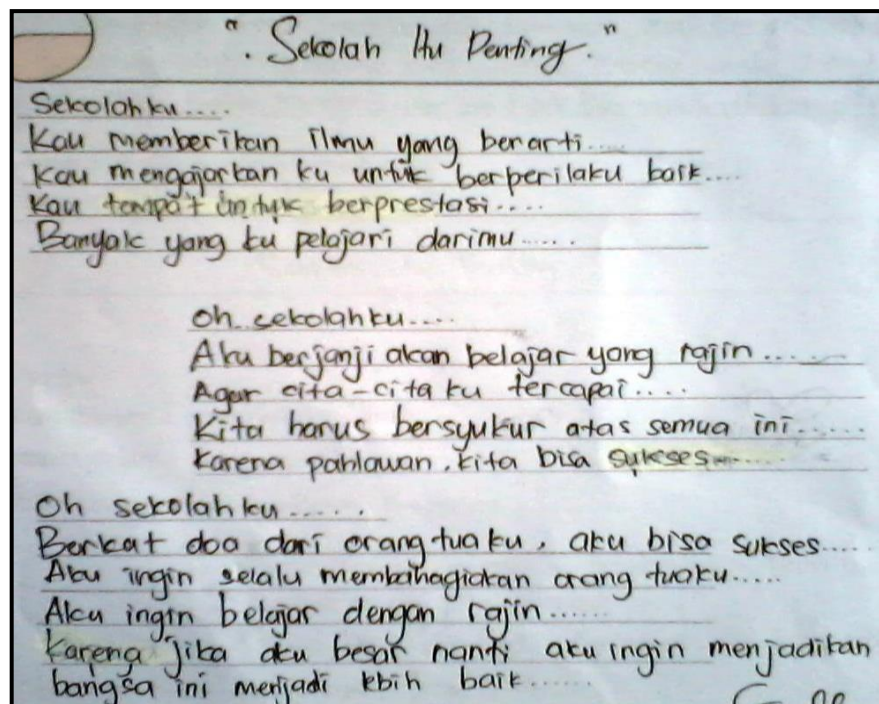 ". Sekolah Itu Penting."
Sekolahku....
Kau memberikan ilmu yang berarti.....
Kau mengajarkan ku untuk berperilaku baik....
Kau tempat untuk berprestasi....
Banyak yang ku pelajari darimu.....
Oh sekolahku....
Aku berjanji akan belajar yang rajin......
Agar cita-cita ku tercapai....
Kita harus bersyukur atas semua ini......
Karena pahlawan, kita bisa sukses.......
Oh sekolahku......
Berkat doa dari orang tua ku, aku bisa sukses....
Aku ingin selalu membahagiakan orang tuaku.....
Aku ingin belajar dengan rajin......
Karena jika aku besar nanti aku ingin menjadikan
bangsa ini menjadi lebih baik......